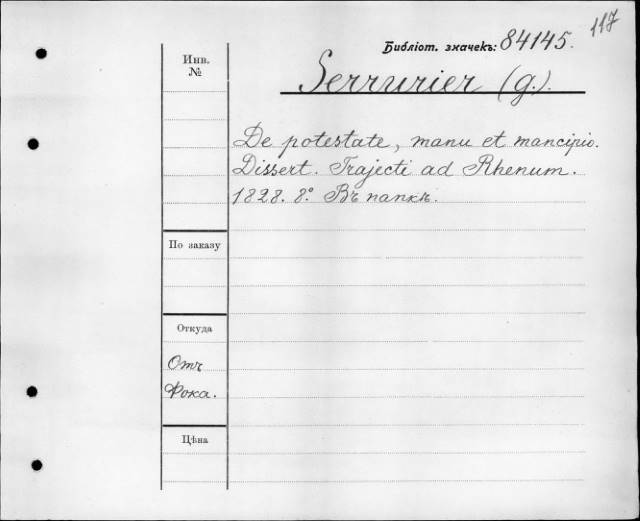 117
Библіот. значекъ: 84145.
Инв. №
Serrurier (G.).
De potestate, manu et mancipio.
Dissert. Trajecti ad Rhenum.
1828. 8º. Въ папкѣ.
По заказу
Откуда
Отъ
Фока.
Цѣна